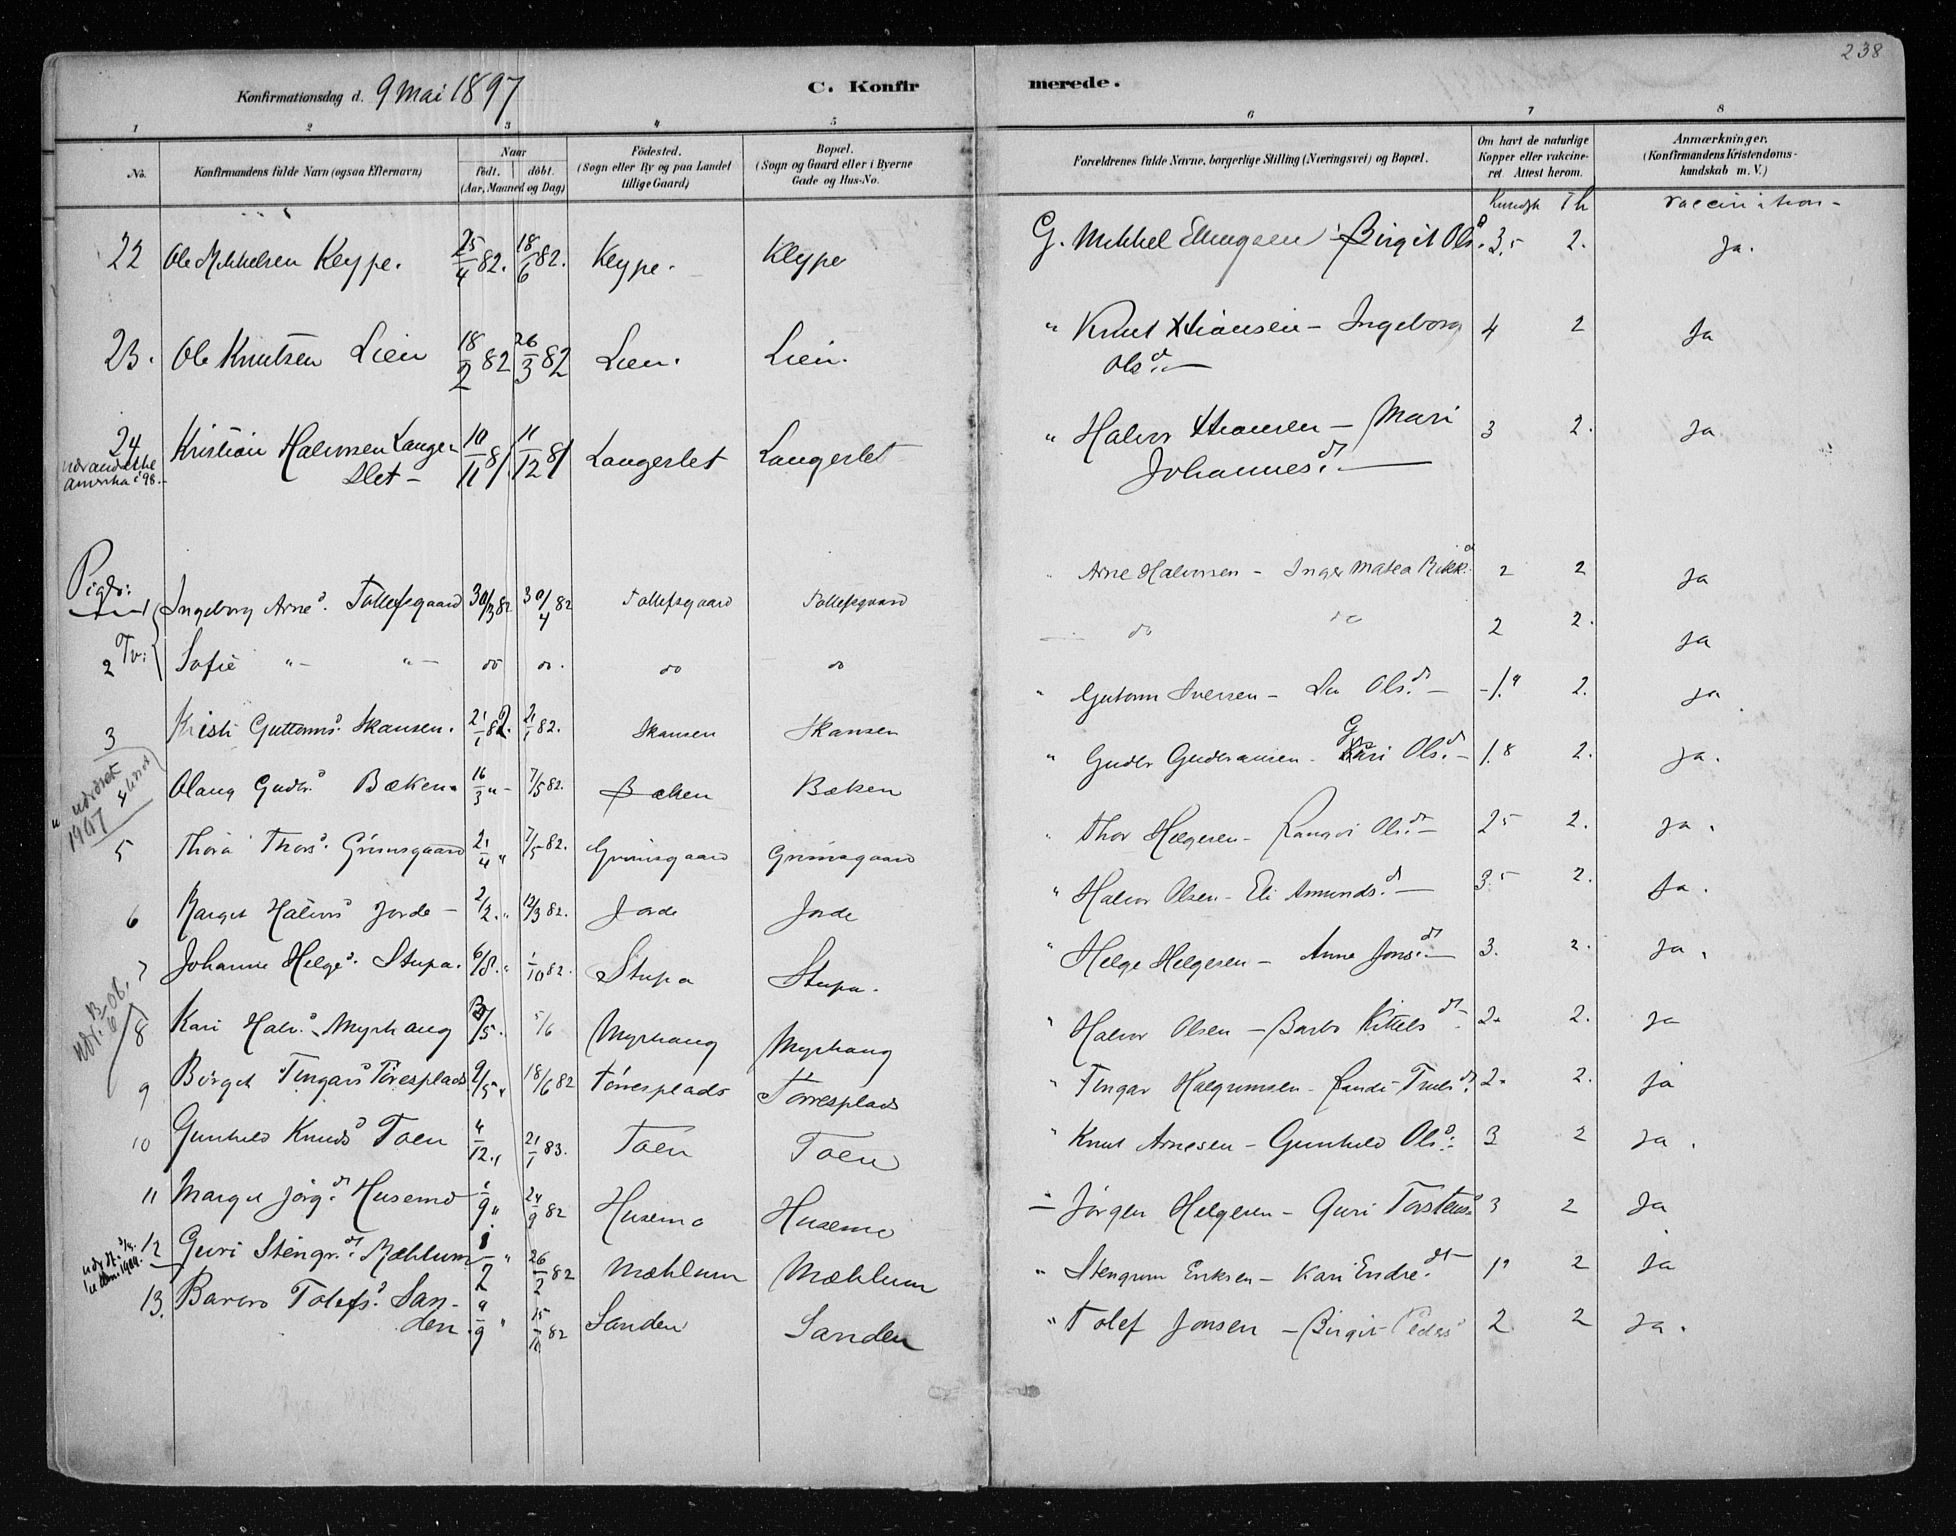 238
Konfirmationsdag d. 9 Mai 1897
C. Konfirmerede.
1 2 3 4 5 6 7 8
No.
Konfirmandens fulde Navn (ogsaa Efternavn)
Naar
født. døbt.
(Aar, Maaned og Dag)
Fødested.
(Sogn eller By og paa Landet
tillige Gaard)
Bopæl.
(Sogn og Gaard eller i Byerne
Gade og Hus-No.
Forældrenes fulde Navne, borgerlige Stilling (Næringsvei) og Bopæl.
Om havt de naturlige
Kopper eller vakcine-
ret Attest herom.
Anmærkninger.
(Konfirmandens Kristendoms-
kundskab m. V.)
Kundsk Fl vaccination-
22 Ole Mikkelsen Kleype. 25/4 82. 18/6 82. Kleype. Kleype G. Mikkel Ellingsen - Birgit Olsd. 3.5 2. Ja.
23. Ole Knutsen Lien 18/2 82 26/3 82 Lien. Lien. " Knut Xtiansen - Ingeborg Olsd. 4 2 Ja
24 Kristian Halvorsen Langeslet - 10/11 81. 11/12 81 Langeslet Langeslet " Halvor Xtiansen - Mari Johannesd. 3 2. Ja
udvandrede
Amerika i 98.
Piger:
1 Ingeborg Arnes. Tollefsgaard 30/3 82 30/4 82 Tollefsgaard Tollefsgaard " Arne Halvorsen - Inger Matea Rikk.d 2 2 Ja
2 Tv: Sofie "- "- do do. do do do do 2 2. Ja
3 Kristi Guttorms. Skansen. 21/1 82. 21/1 82. Skansen Skansen " Gutorm Iversen - Olsd. - 2. Ja
Udvdret 1907
Olaug Gudbr. Bækken 16/3 "- 7/5 82. Bæken Bæken " Gudbr Gudbransen - Kari Olsd. 1.8 2. Ja.
5 Thora Thors. Grimsgaard 21/4 " 7/5 82. Grimsgaard Grimsgaard " Thor Helgesen - Rangdi Olsd. 25 2. Ja.
6 Marget Halvors Jorde - 2/2. " 12/3 82. Jorde Jorde " Halvor Olsen - Eli Amundsd. 3.5 2. Ja.
7 Johanne Helges. Stupa. 6/8. " 1/10 82. Stupa Stupa. " Helge Helgesen - Anne Jonsd. 3. 2. Ja.
8 Kari Halv. Myrhaug /5. 5/6 Myrhaug Myrhaug " Halvor Olsen - Barbo Kittelsd. 2. 2. Ja
9 Birget Tingars Torresplads 9/5 " 18/6 82 Torresplads Torresplads " Tingar Halgrimsen - Randi Truls d. 2. 2. ja
10 Gunhild Knuds Toen 4/12 " 21/1 83. Toen Toen " Knut Arnesen - Gunhild Ols. 3 2 Ja.
11 Marget Jørg.d. Husemo 1/9 " 24/9 82 Husemo Husemo - Jørgen Helgesen - Guri Torstens 3 2 Ja
12 Guri Stengr.d. Mæhlum " 26/2 82 Mæhlum Mæhlum " Stengrim Eriksen - Kari Endred. 2 Ja
13. Barbro Tolefs. Sanden. 9/9 " 15/10 82 Sanden Sanden " Tolef Jonsen - Birgit Peders 2 2 Ja.